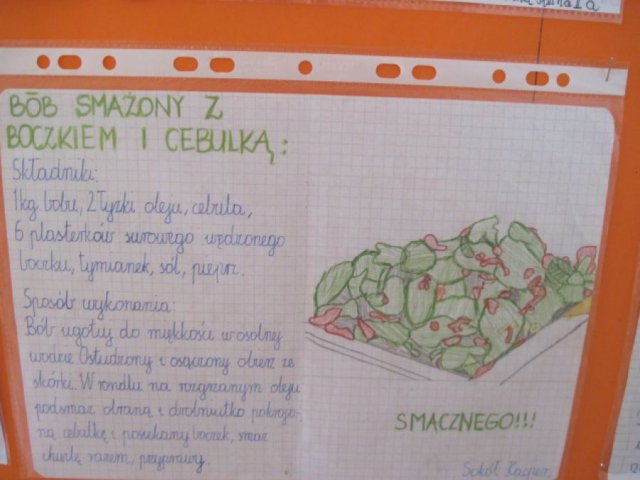 BÓB SMAŻONY Z
BOCZKIEM I CEBULKĄ:
Składniki:
1kg bobu, 2 łyżki oleju, cebula,
6 plasterków surowego wędzonego
boczku, tymianek, sól, pieprz.
Sposób wykonania:
Bób ugotuj do miękkości w osolnej
wodzie. Ostudzony i osączony obierz ze
skórki. W rondlu na rozgrzanym oleju
podsmaż obraną i drobniutko pokrojo-
ną cebulkę i posiekany boczek, smaż
chwilę razem, przyprawy.
SMACZNEGO!!!
Sokół Kacper